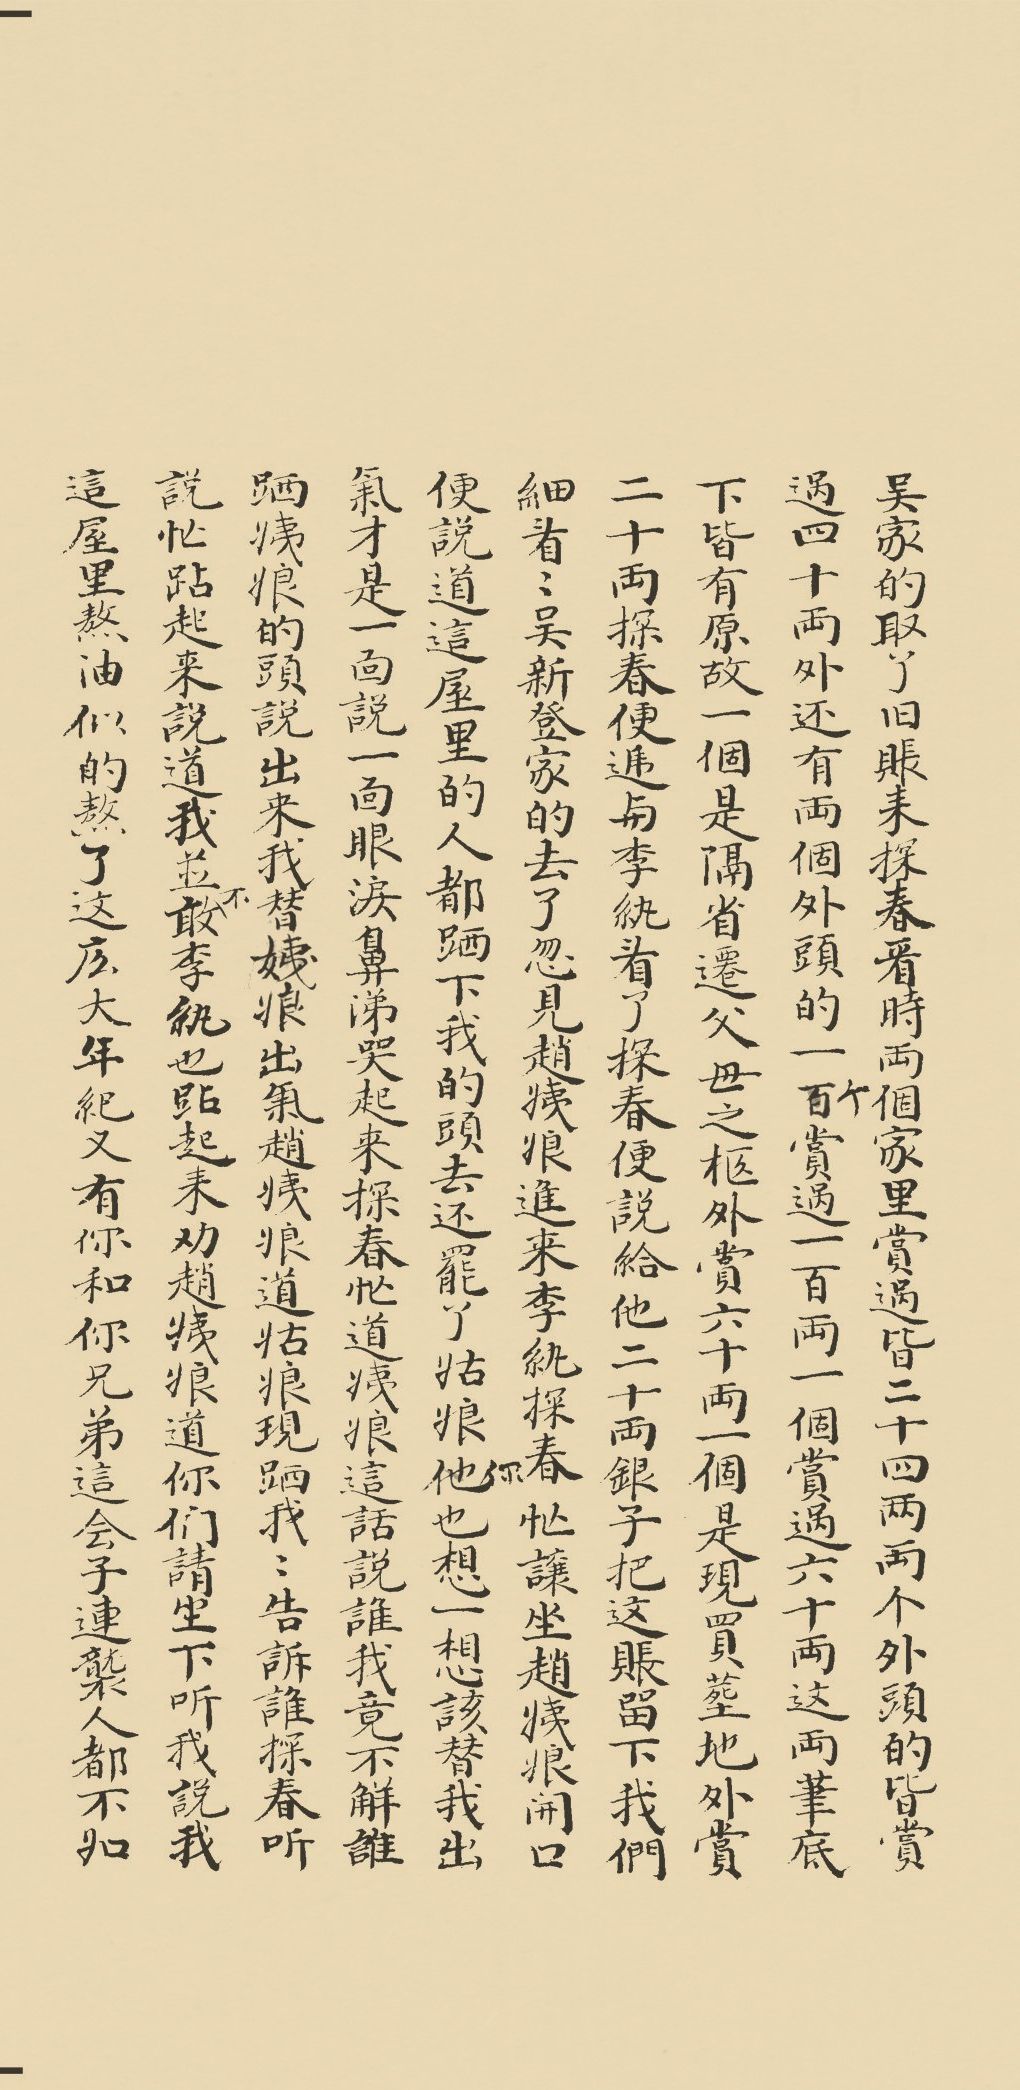 吴家的取了旧賬来探春看時両個家里賞过皆二十四两両个外頭的皆賞
过四十両外还有両個外頭的一个百賞过一百両一個賞过六十両这両筆底
下皆有原故一個是隔省遷父母之柩外賞六十両一個是現買塟地外賞
二十両探春便遞与李紈看了探春便說給他二十両銀子把这賬留下我們
細看〻吴新登家的去了忽見趙姨娘進来李紈探春忙讓坐趙姨娘開口
便說道這屋里的人都跴下我的頭去还罷了姑娘你他也想一想該替我出
氣才是一面說一面眼淚鼻涕哭起来探春忙道姨娘這話說誰我竟不解誰
跴姨娘的頭說出来我替姨娘出氣趙姨娘道姑娘現跴我〻告訴誰探春听
說忙跕起来說道我並不敢李紈也跕起来劝趙姨娘道你们請坐下听我說我
這屋里熬油似的熬了这庅大年紀又有你和你兄弟這会子連襲人都不如